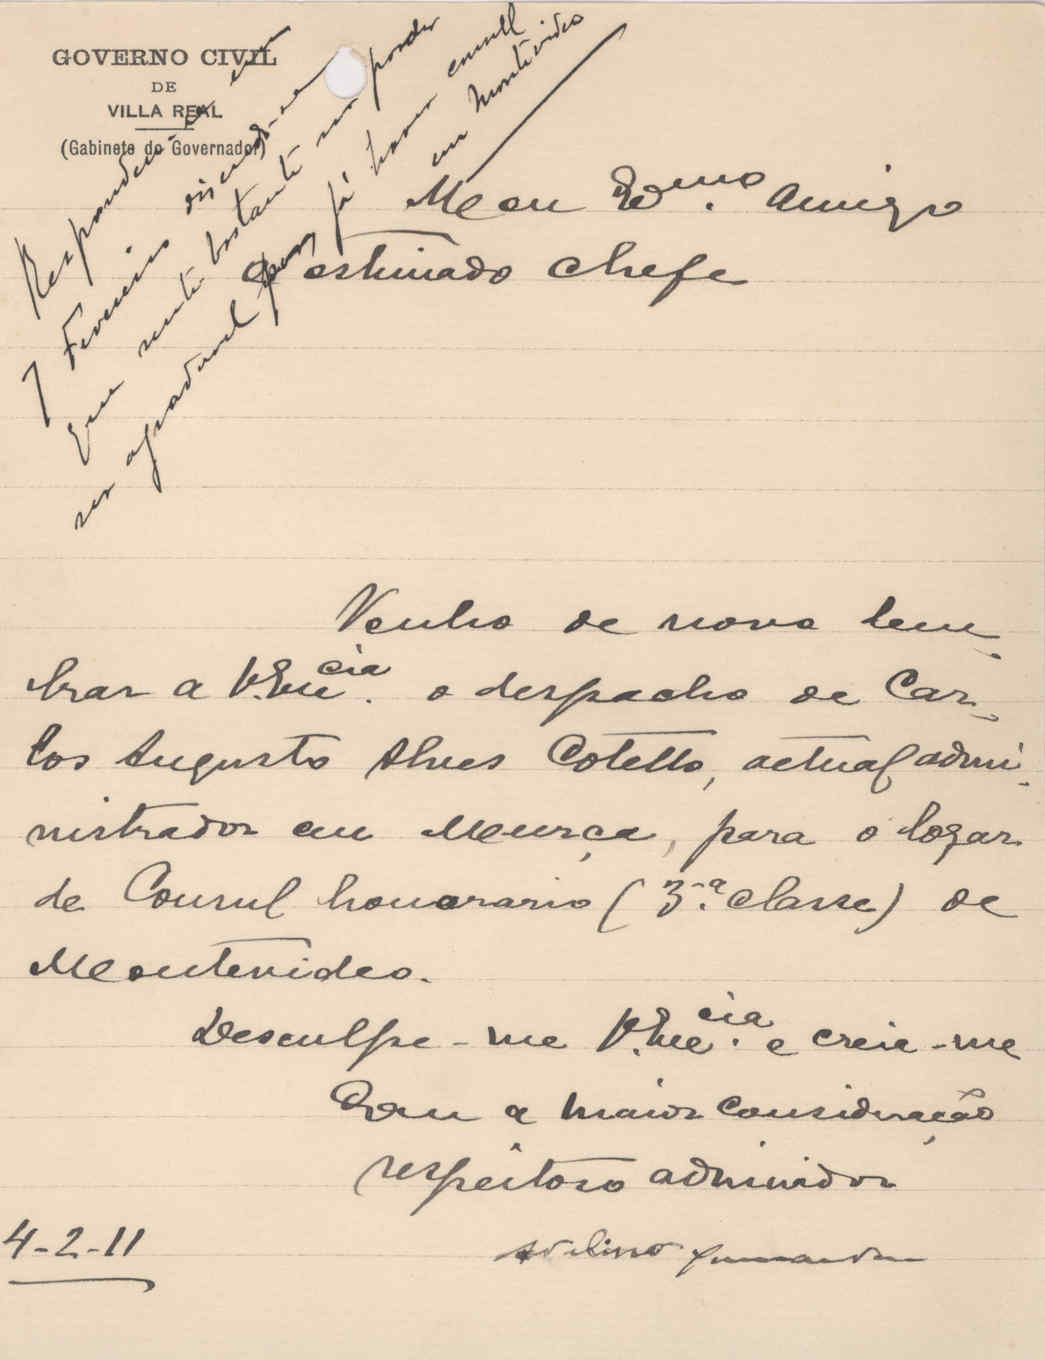 GOVERNO CIVIL
DE
VILLA REAL
(Gabinete do Governador)
Respondeu-se em
7 Fevereiro dizendo-se
que sente bastante não poder
ser agradavel pois já houve consul
em Montevideo
Meu Exmo. Amigo
e estimado chefe
Venho de novo lem-
brar a V. Excia. o despacho de Car-
los Augusto Alves Cotello, actual admi-
nistrador em Murça, para o logar
de Consul honorario (3.ª classe) de
Montevideo.
Desculpe-me V. Excia. e creia-me
Com a maior consideração
respeitoso admirador
4-2-11
Adelino